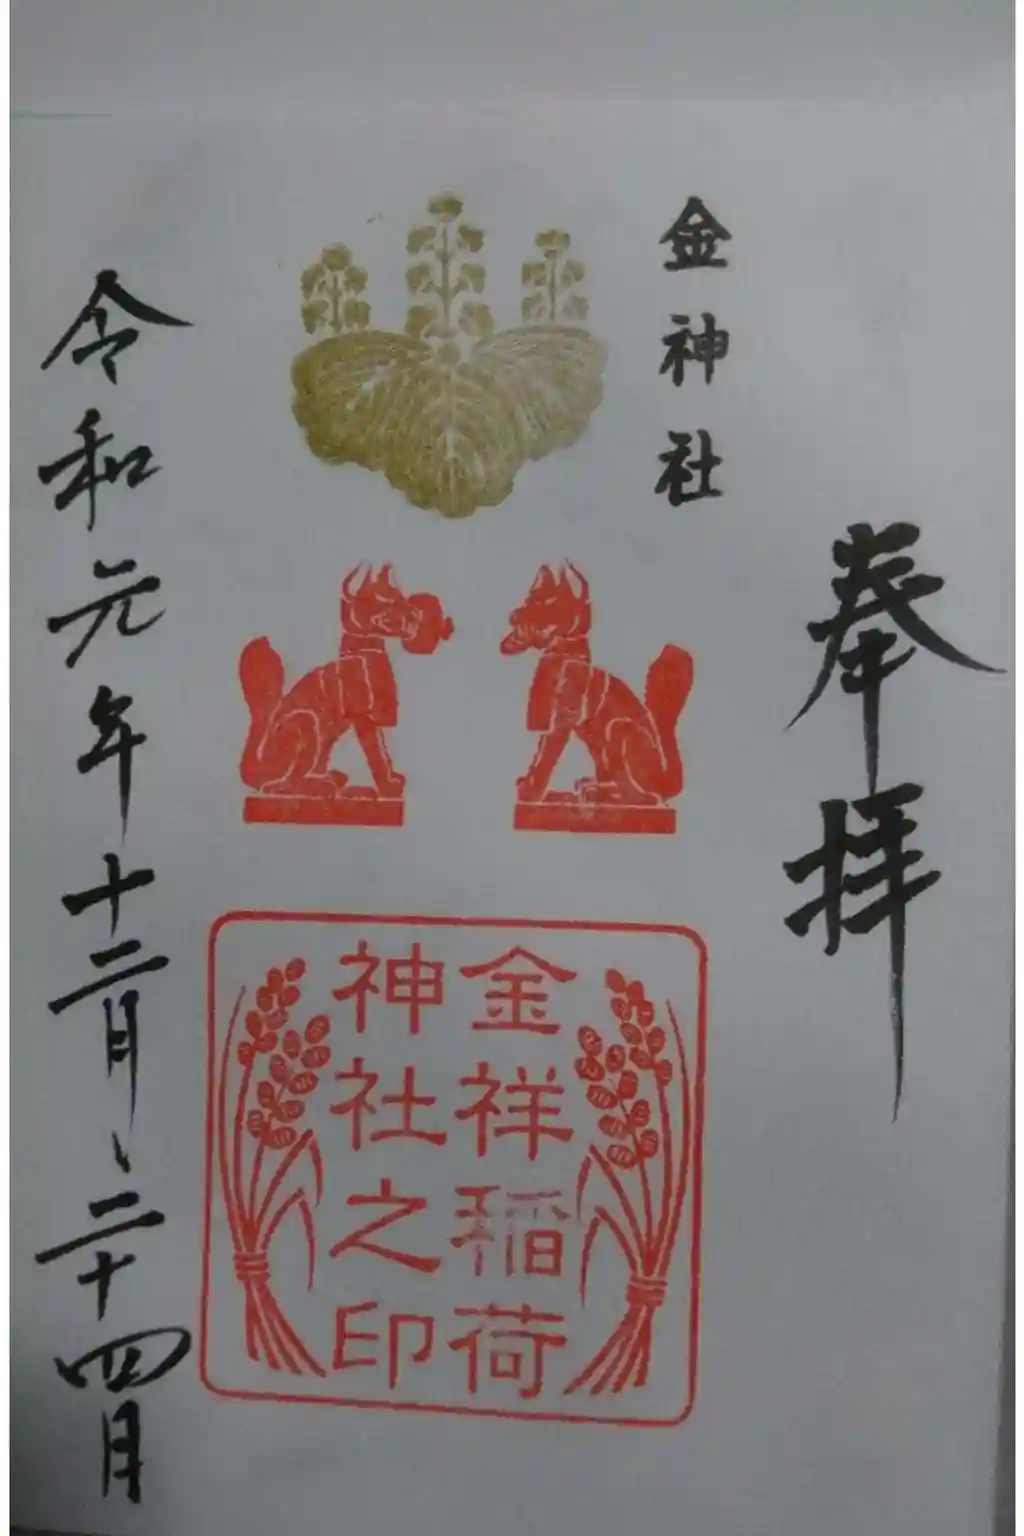 奉拝
金神社
金祥稲荷
神社之印
令和元年十二月、二十四日